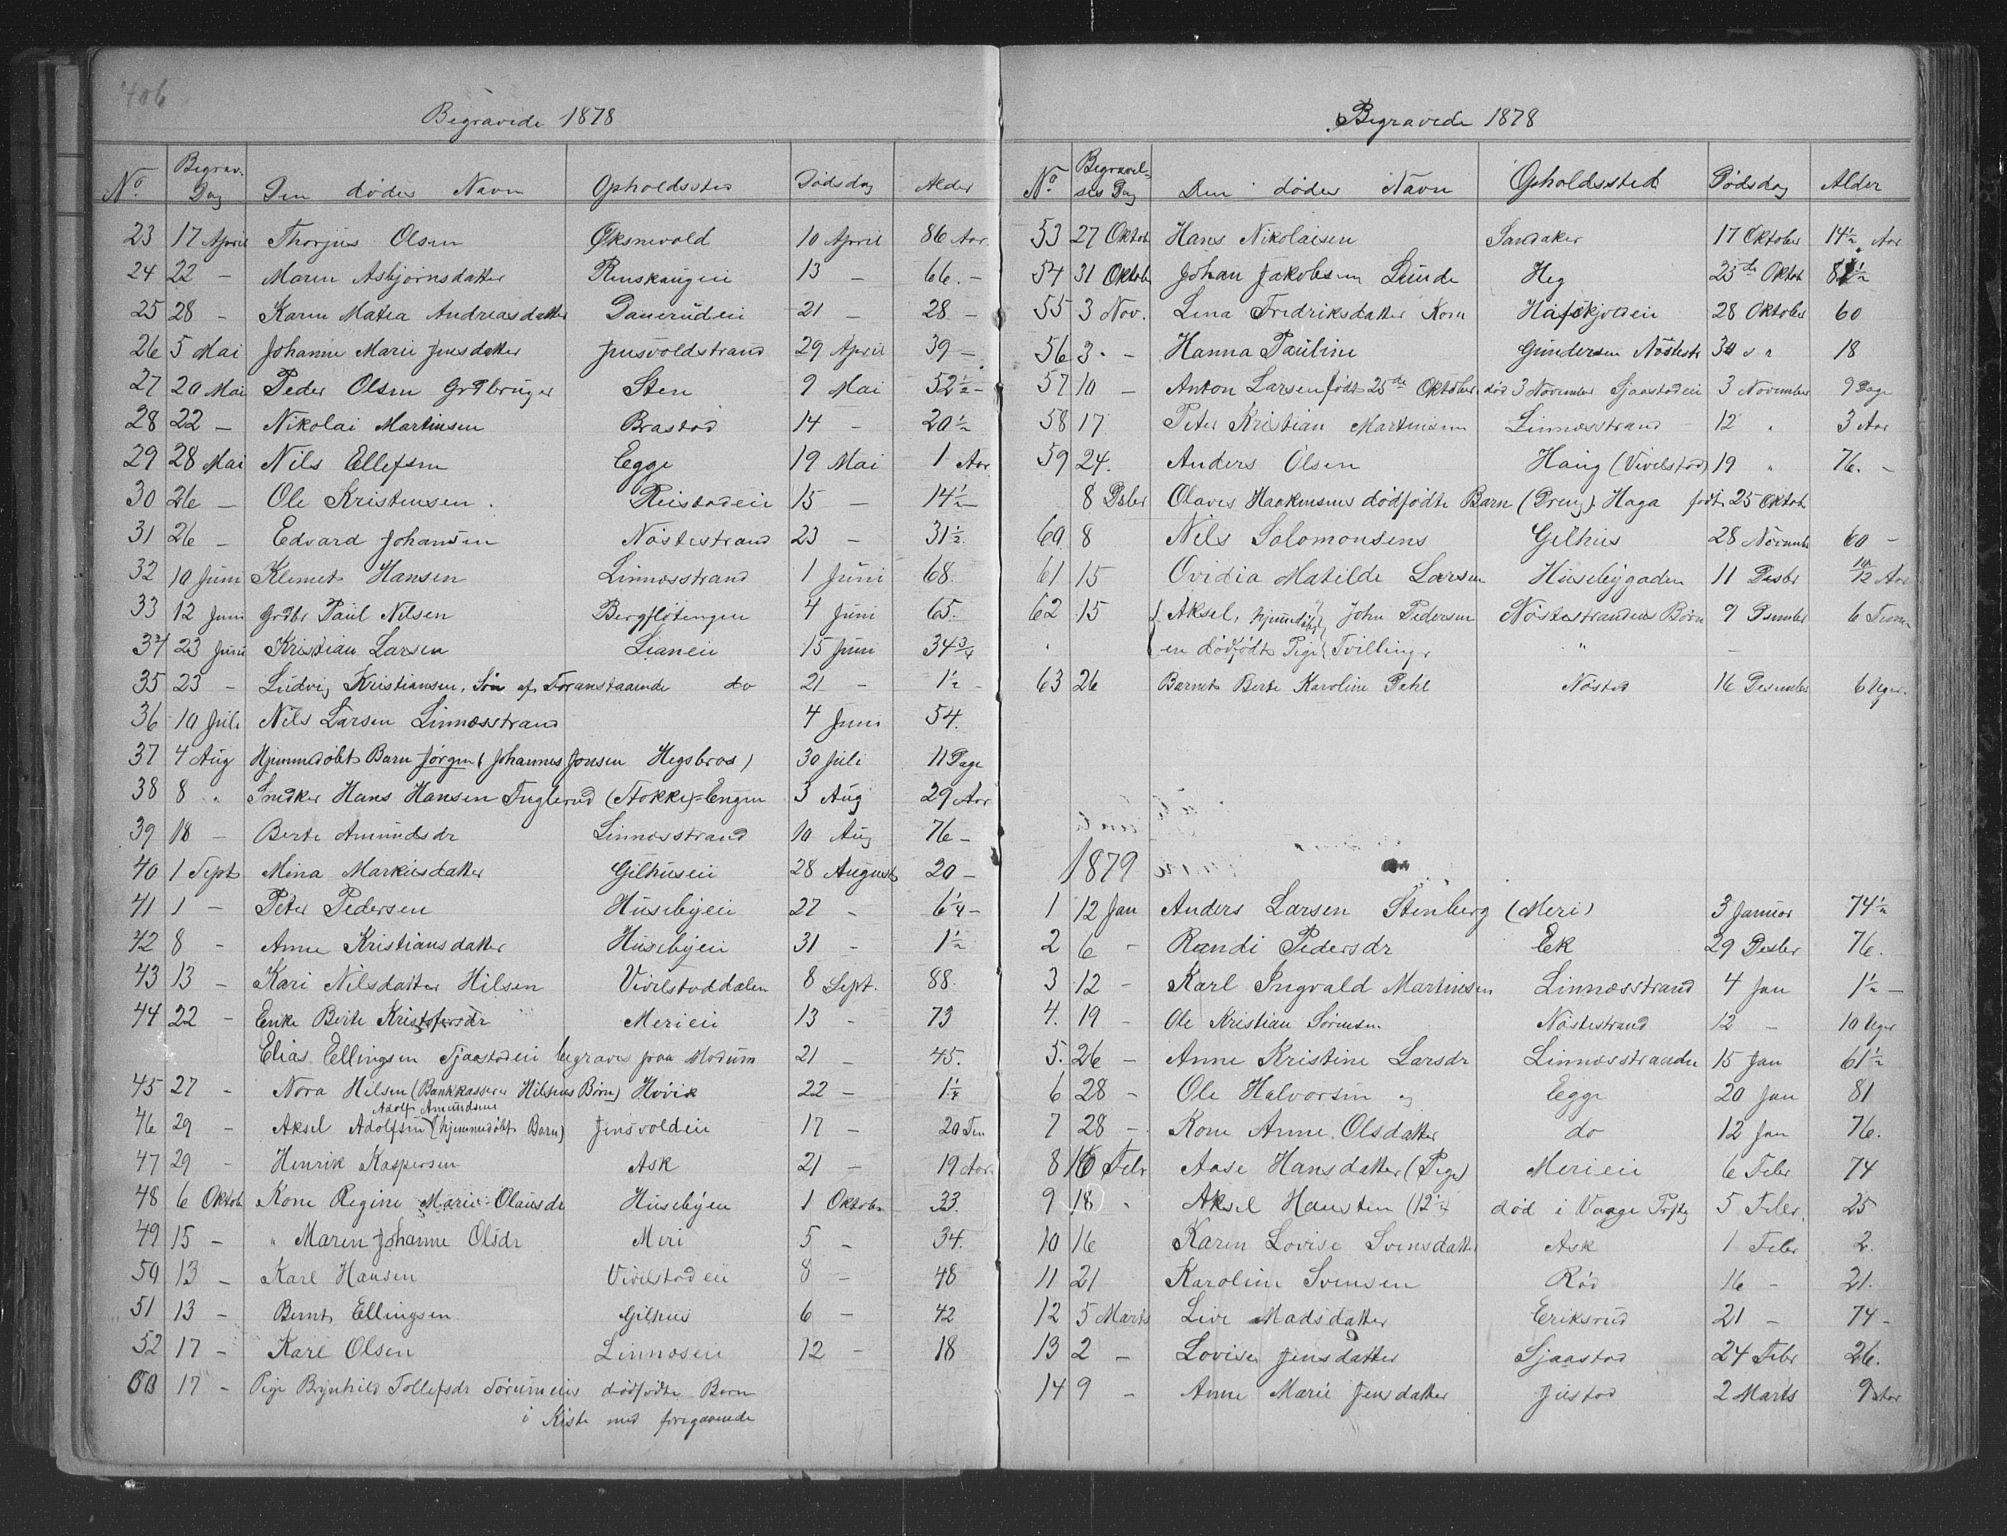 406
Begravede 1878
No Begrav. Dag Den dødes Navn Opholdssted Dødsdag Alder
23 17 April Thorjus Olsen Øksnevold 10 April 86 Aar
24 22 — Maren Asbjørnsdatter Renskaugeie 13 — 66. —
25 28 — Karen Matea Andreasdatter Danerudeie 21 — 28 —
26 5 Mai Johanne Marie Jensdatter Jensvoldstrand 29 April 39 —
27 20 Mai Peder Olsen Grdbruger Sten 9 Mai 52½ —
28 22 — Nikolai Martinsen Brastad 14 — 20½
29 28 Mai Nils Ellefsen Egge 19 Mai 1 Aar
30 26 — Ole Kristensen Reistadeie 15 — 14½ —
31 26 — Edvard Johansen Nøstestrand 23 — 31½
32 10 Juni Klemet Hansen Linnæsstrand 1 Juni 68.
33 12 Juni Grdbr Paul Nilsen Bergfløtengen 4 Juni 65.
34 23 Juni Kristian Larsen Lianeie 15 Juni 34¾
35 23 — Ludvig Kristiansen, Søn af Foranstaaende do 21 — 1½ —
36 10 Juli Nils Larsen Linnæsstrand 4 Juni 54.
37 4 Aug Hjemmedøbt Barn Jørgen (Johannes Jonsen Hegsbroe) 30 Juli 11 Dage
38 8 „ Snedker Hans Hansen Fuglerud (Stokke)-Engen 3 Aug 29 Aar
39 18 — Berte Amundsdr Linnæsstrand 10 Aug 76 —
40 1 Sept Mina Markusdatter Gilhuseie 28 August 20 —
41 1 — Peter Pedersen Husebyeie 27 — 6¼ —
42 8 — Anne Kristiansdatter Husebyeie 31 — 1½
43 13 — Kari Nilsdatter Hilsen Vivelstaddalen 8 Sept. 88.
44 22 — Enke Berte Kristofersdr Merieie 13 — 73
Elias Ellingsen Sjaastadeie begraves paa Modum 21 — 45.
45 27 — Nora Hilsen (Bankkasserer Hilsens Børn) Hovik 22 — 1¼
Adolf Amundsens
46 29 — Aksel Adolfsen (hjemmedøbt Barn) Jensvoldeie 17 — 20 Tim
47 29 — Henrik Kaspersen Ask 21 — 19 Aar
48 6 Oktob Kone Regine Marie Olausdr Husebyen 1 Oktober 33.
49 15 — „ Maren Johanne Olsdr Meri 5 — 34.
50 13 — Karl Hansen Vivelstadeie 8 — 48
51 13 — Bernt Ellingsen Gilhus 6 — 42
52 17 — Karl Olsen Linnæseie 12 — 18
17 — Pige Brynhild Tollefsdr dødfødte Barn
i Kiste med foregaaende
Begravede 1878
No Begravelses Dag Den dødes Navn Opholdssted Dødsdag Alder
53 27 Oktob Hans Nikolaisen Sandaker 17 Oktober 14½ Aar
54 31 Oktob Johan Jakobsen Lunde Heg 25de Oktob
55 3 Nov. Lina Fredriksdatter Kone Hafskjoldeie 28 Oktober 60
56 3 — Hanna Pauline Gundersen Nøstestr 30 18
57 10 — Anton Larsen født 25de Oktober død 3 November Sjaastadeie 3 November 9 Dage
58 17 Peter Kristian Martinsen Linnæsstrand 12 „ 3 Aar
59 24. Anders Olsen Haug (Vivelstad) 19 „ 76. —
8 Dsber Olaves Haakensens dødfødte Barn (Dreng) Haga født 25 Oktob
60 8 Nils Salomonsens Gilhus 28 Novembr 60 —
61 15 Ovidia Matilde Larsen Husebygaden 11 Desbr 10/12 Aar
62 15 Aksel, hjemdøbt John Pedersen Nøstestrandens Børn 9 Desember 6 Timer
„ en dødfødt Pige Tvillinger „ —
63 26 Barnet Berte Karoline Dahl Nøstad 16 Desember 6 Uger
1879
1 12 Jan Anders Larsen Stenberg (Meri) 3 Januar 74½
2 6 — Randi Pedersdr Ek 29 Desber 76.
3 12 — Karl Ingvald Martinsen Linnæsstrand 4 Jan 1½ —
4. 19 — Ole Kristian Sørensen Nøstestrand 12 — 10 Uger
5. 26 — Anne Kristine Larsdr Linnæsstranden 15 Jan 61½
6 28 — Ole Halvorsen Egge 20 Jan 81
7 28 — Kone Anne Olsdatter do 12 Jan 76.
8 16 Febr Aase Hansdatter (Pige) Merieie 6 Febr 74
9 18 „ Aksel Hansten død i Vaage 5 Febr. 25
10 16 Karen Lovise Svensdatter Ask 1 Febr 2.
11 21 Karoline Svensen Rød 16 — 21.
12 5 Marts Live Madsdatter Eriksrud 21 — 74 —
13 2 — Lovise Jensdatter Sjaastad 24 Febr 26.
14 9 — Anne Marie Jensdatter Justad 2 Marts 9 Aar